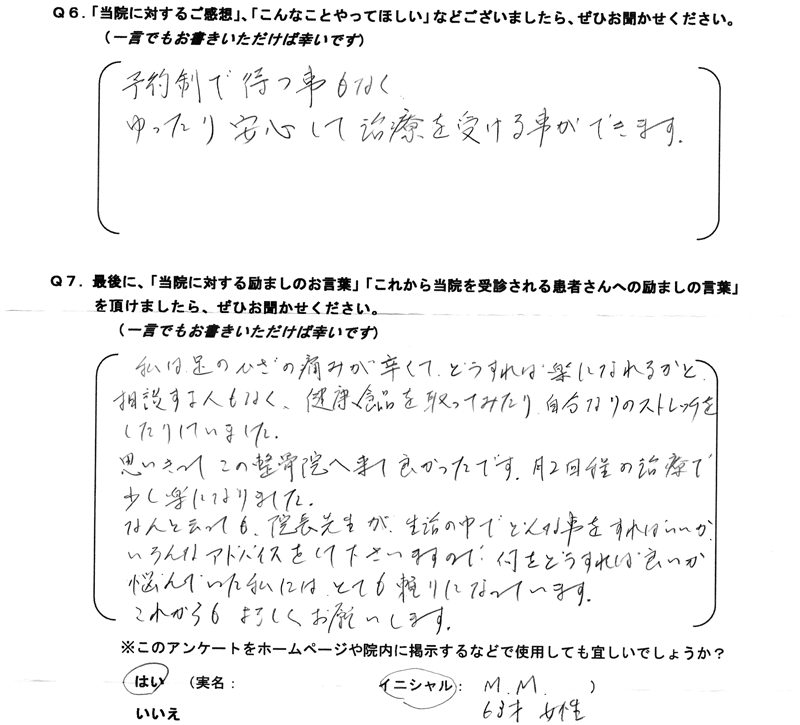 Q6.「当院に対するご感想」、「こんなことやってほしい」などございましたら、ぜひお聞かせください。
(一言でもお書きいただけば幸いです)
予約制で待つ事もなく
ゆったり安心して治療を受ける事ができます.
Q7. 最後に、「当院に対する励ましのお言葉」「これから当院を受診される患者さんへの励ましの言葉」
を頂けましたら、ぜひお聞かせください。
(一言でもお書きいただけば幸いです)
私は足のひざの痛みが辛くて、どうすれば楽になれるかと、
相談する人もなく、健康食品を取ってみたり、自分なりのストレッチを
したりしていました.
思いきって この整骨院へ来て良かったです. 月2回程の治療で
少し楽になりました.
なんと云っても、院長先生が、生活の中でどんな事をすればいいか、
いろんなアドバイスをして下さいますので、何をどうすれば良いか
悩んでいた私には、とても頼りになっています.
これからも よろしくお願いします.
※このアンケートをホームページや院内に掲示するなどで使用しても宜しいでしょうか?
はい (実名: イニシャル: M. M. )
いいえ 63才 女性